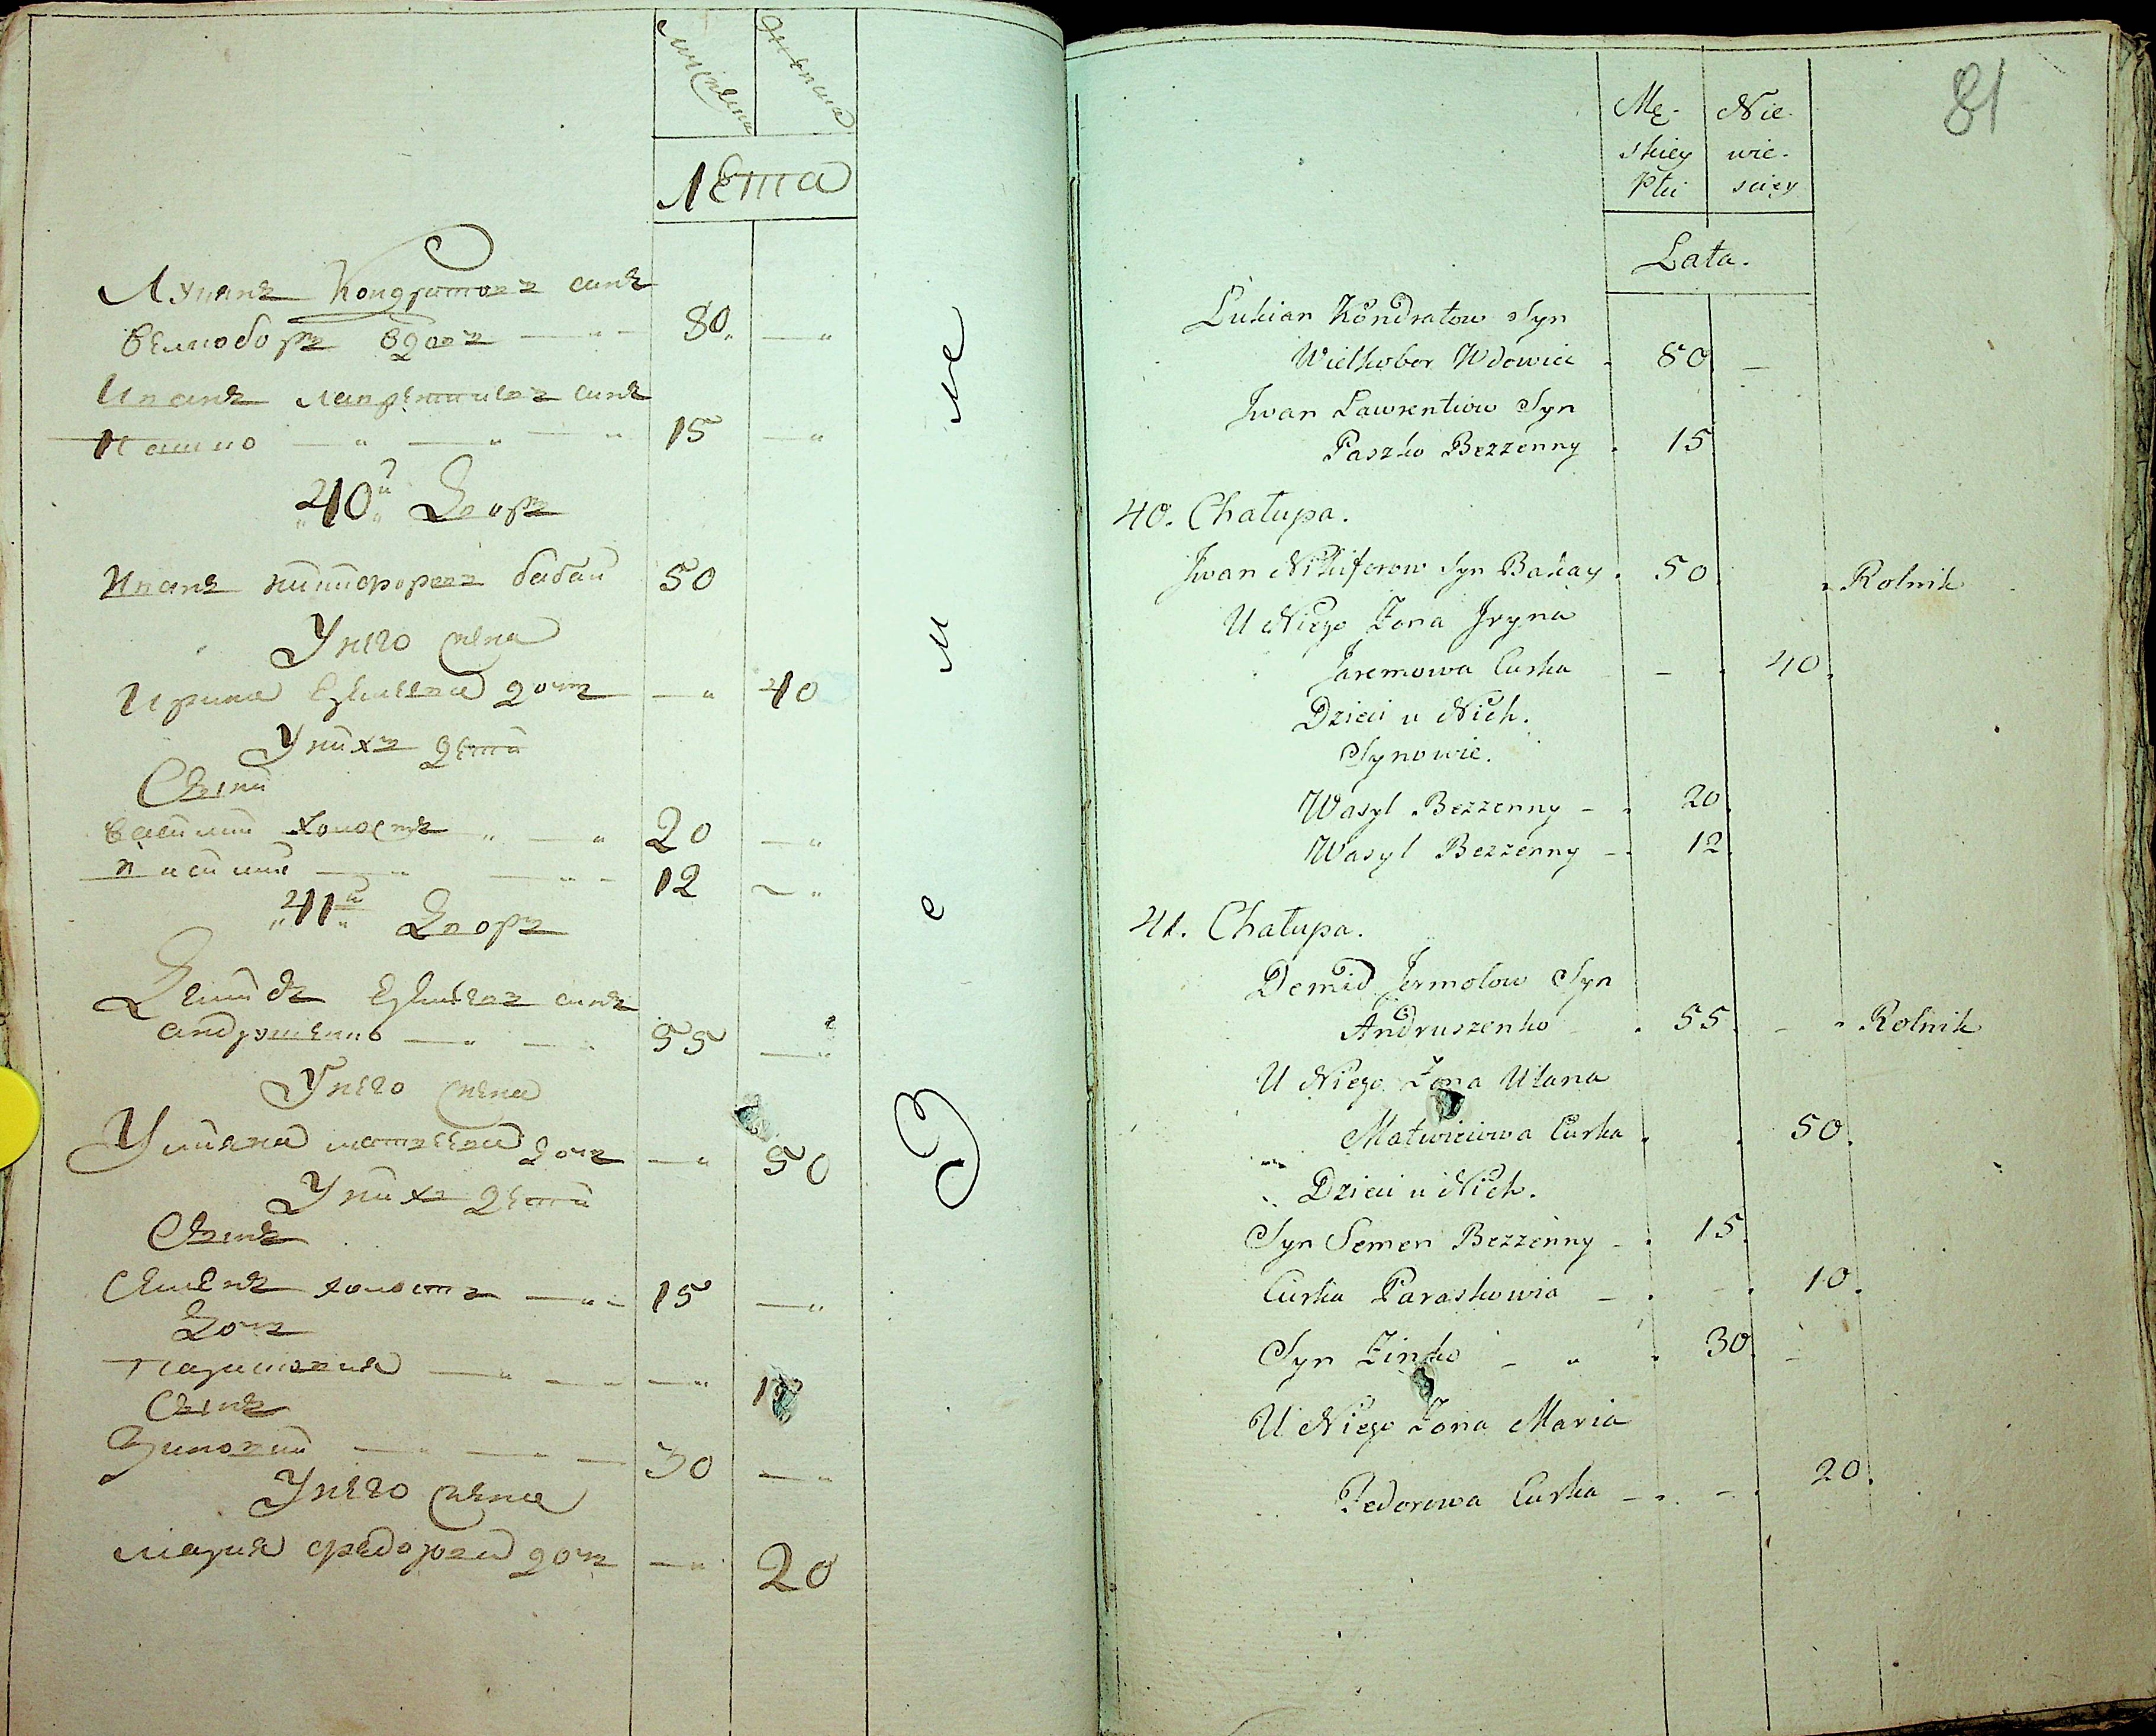 мужеска
женска
Лета
Лукянъ Кондратовъ синъ
Велкоборъ вдовъ — " — 80 — "
Иванъ Лаврентиевъ синъ
Пашко — " — " — " 15 — "
40й Дворъ
Иванъ Никифоровъ бабай 50
У него жена
Ирина Ермиева дочь — " 40
У нихъ дети
Сыни
Василий холостъ " — " 20 — "
Василий — " — " — 12 — "
41й Дворъ
Демидъ Ермиевъ синъ
Андрушенко — " — 55 — "
У него жена
Улияна Матвеева дочь — " 50
У нихъ дети
Сынъ
Семенъ холостъ — " — 15 — "
Дочь
Парасковия — " — — " 10
Сынъ
Зиновий — " — " — 30 — "
У него жена
Мария Федорова дочь — " 20
З е м л е
81
Mę- Nie-
skiey wie-
Płci sciey
Lata.
Lukian Kondratow Syn
Wielkobor Wdowiec . 80 —
Jwan Lawrentiow Syn
Paszko Bezzenny . 15
40. Chałupa.
Jwan Nikiforow Syn Bakay . 50 " Rolnik
U Niego Żona Jryna
Jaremowa Curka — . 40.
Dzieci u Nich.
Synowie.
Wasyl Bezzenny — . 20
Wasyl Bezzenny — . 12
41. Chałupa.
Demid Jermolow Syn
Andruszenko . 55 . — " Rolnik
U Niego Żona Ulana
Matwieiowa Curka . . 50.
Dzieci u Nich.
Syn Semen Bezzenny — . 15
Curka Paraskowia — . — . 10.
Syn Zinko — " . 30. —
U Niego Żona Maria
Fedorowa Curka — . — . 20.